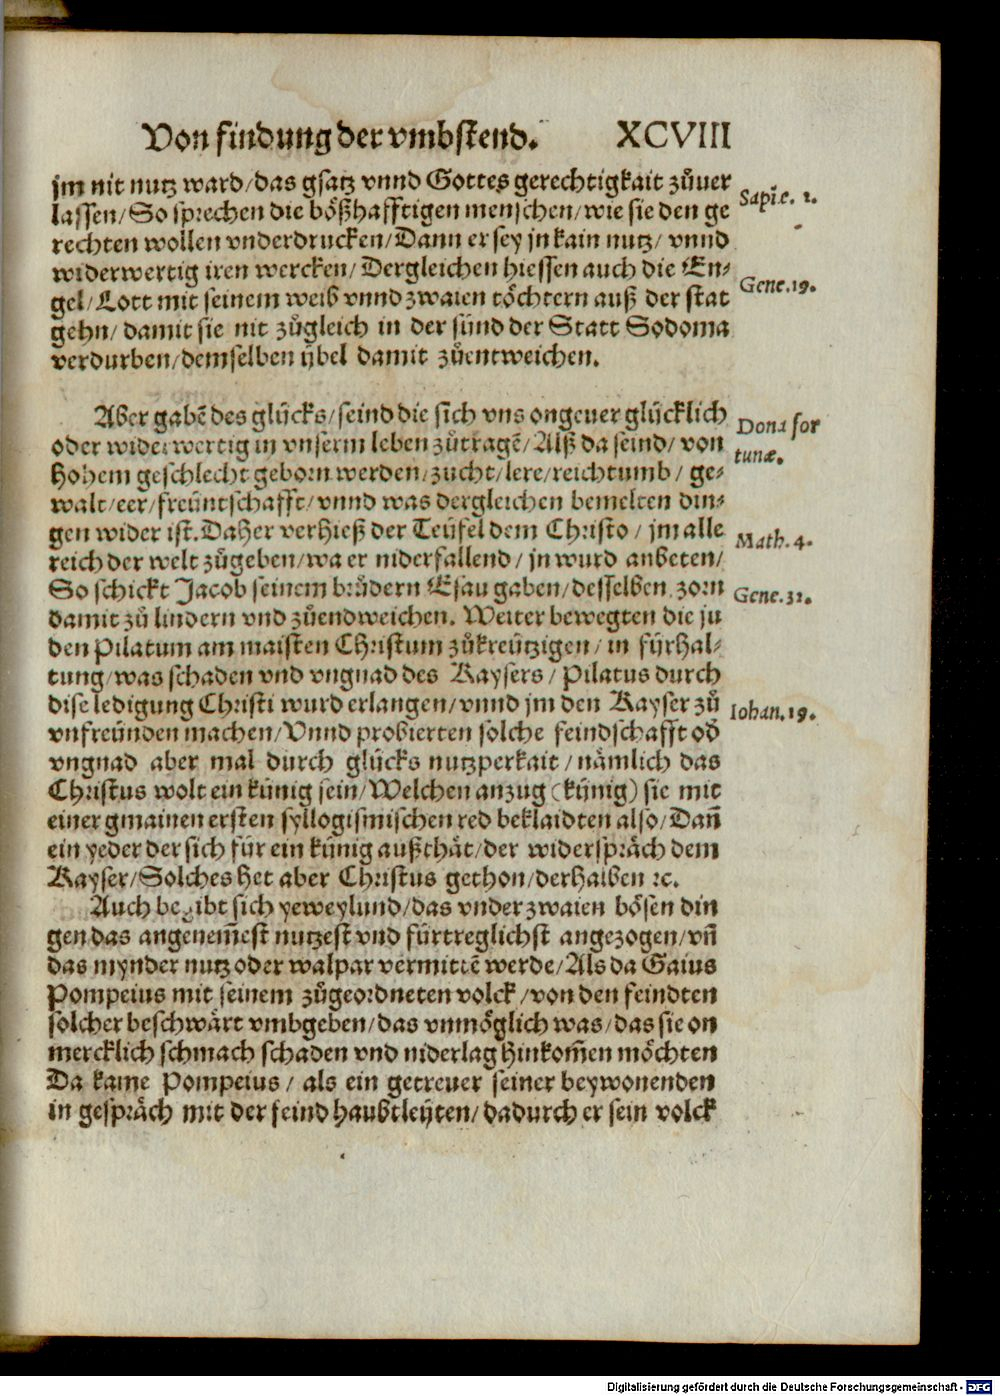 Von findung der vmbstend. XCVIII
jm nit nutz ward/das gsatz vnnd Gottes gerechtigkait zůuer
lassen/So sprechen die bößhafftigen menschen/wie sie den ge
rechten wollen vnderdrucken/Dann er sey jn kain nutz/vnnd
widerwertig iren wercken/Dergleichen hiessen auch die En⸗
gel/Lott mit seinem weib vnnd zwaien töchtern auß der stat
gehn/damit sie nit zůgleich in der sünd der Statt Sodoma
verdurben/demselben übel damit zůentweichen.
Sapi.e. 2.
Gene.19.
Aber gabē des glücks/seind die sich vns ongeuer glücklich
oder widerwertig in vnserm leben zůtragē/Alß da seind/von
hohem geschlecht geborn werden/zucht/lere/reichtumb/ge⸗
walt/eer/freüntschafft/vnnd was dergleichen bemelten din⸗
gen wider ist. Daher verhieß der Teüfel dem Christo/jm alle
reich der welt zůgeben/wa er niderfallend/jn wurd anbeten/
So schickt Jacob seinem brůdern Esau gaben/desselben zorn
damit zů lindern vnd zůendweichen. Weiter bewegten die ju
den Pilatum am maisten Christum zůkreützigen/in fürhal⸗
tung/was schaden vnd vngnad des Kaysers/Pilatus durch
dise ledigung Christi wurd erlangen/vnnd jm den Kayser zů
vnfreünden machen/Vnnd probierten solche feindschafft od̄
vngnad aber mal durch glücks nutzperkait/nämlich das
Christus wolt ein künig sein/Welchen anzug (künig) sie mit
einer gmainen ersten syllogismischen red beklaidten also/Dañ
ein yeder der sich für ein künig außthät/der widerspräch dem
Kayser/Solches het aber Christus gethon/derhalben ꝛc.
Dona for
tunæ.
Math. 4.
Gene.32.
Iohan.19.
Auch begibt sich yeweylund/das vnder zwaien bösen din
gen das angenem̄est nutzest vnd fürtreglichst angezogen/vñ
das mynder nutz oder walpar vermittē werde/Als da Gaius
Pompeius mit seinem zůgeordneten volck/von den feindten
solcher beschwärt vmbgeben/das vnmöglich was/das sie on
mercklich schmach schaden vnd niderlag hinkom̄en möchten
Da kame Pompeius/als ein getreuer seiner beywonenden
in gespräch mit der feind haubtleüten/dadurch er sein volck
Digitalisierung gefördert durch die Deutsche Forschungsgemeinschaft - DFG